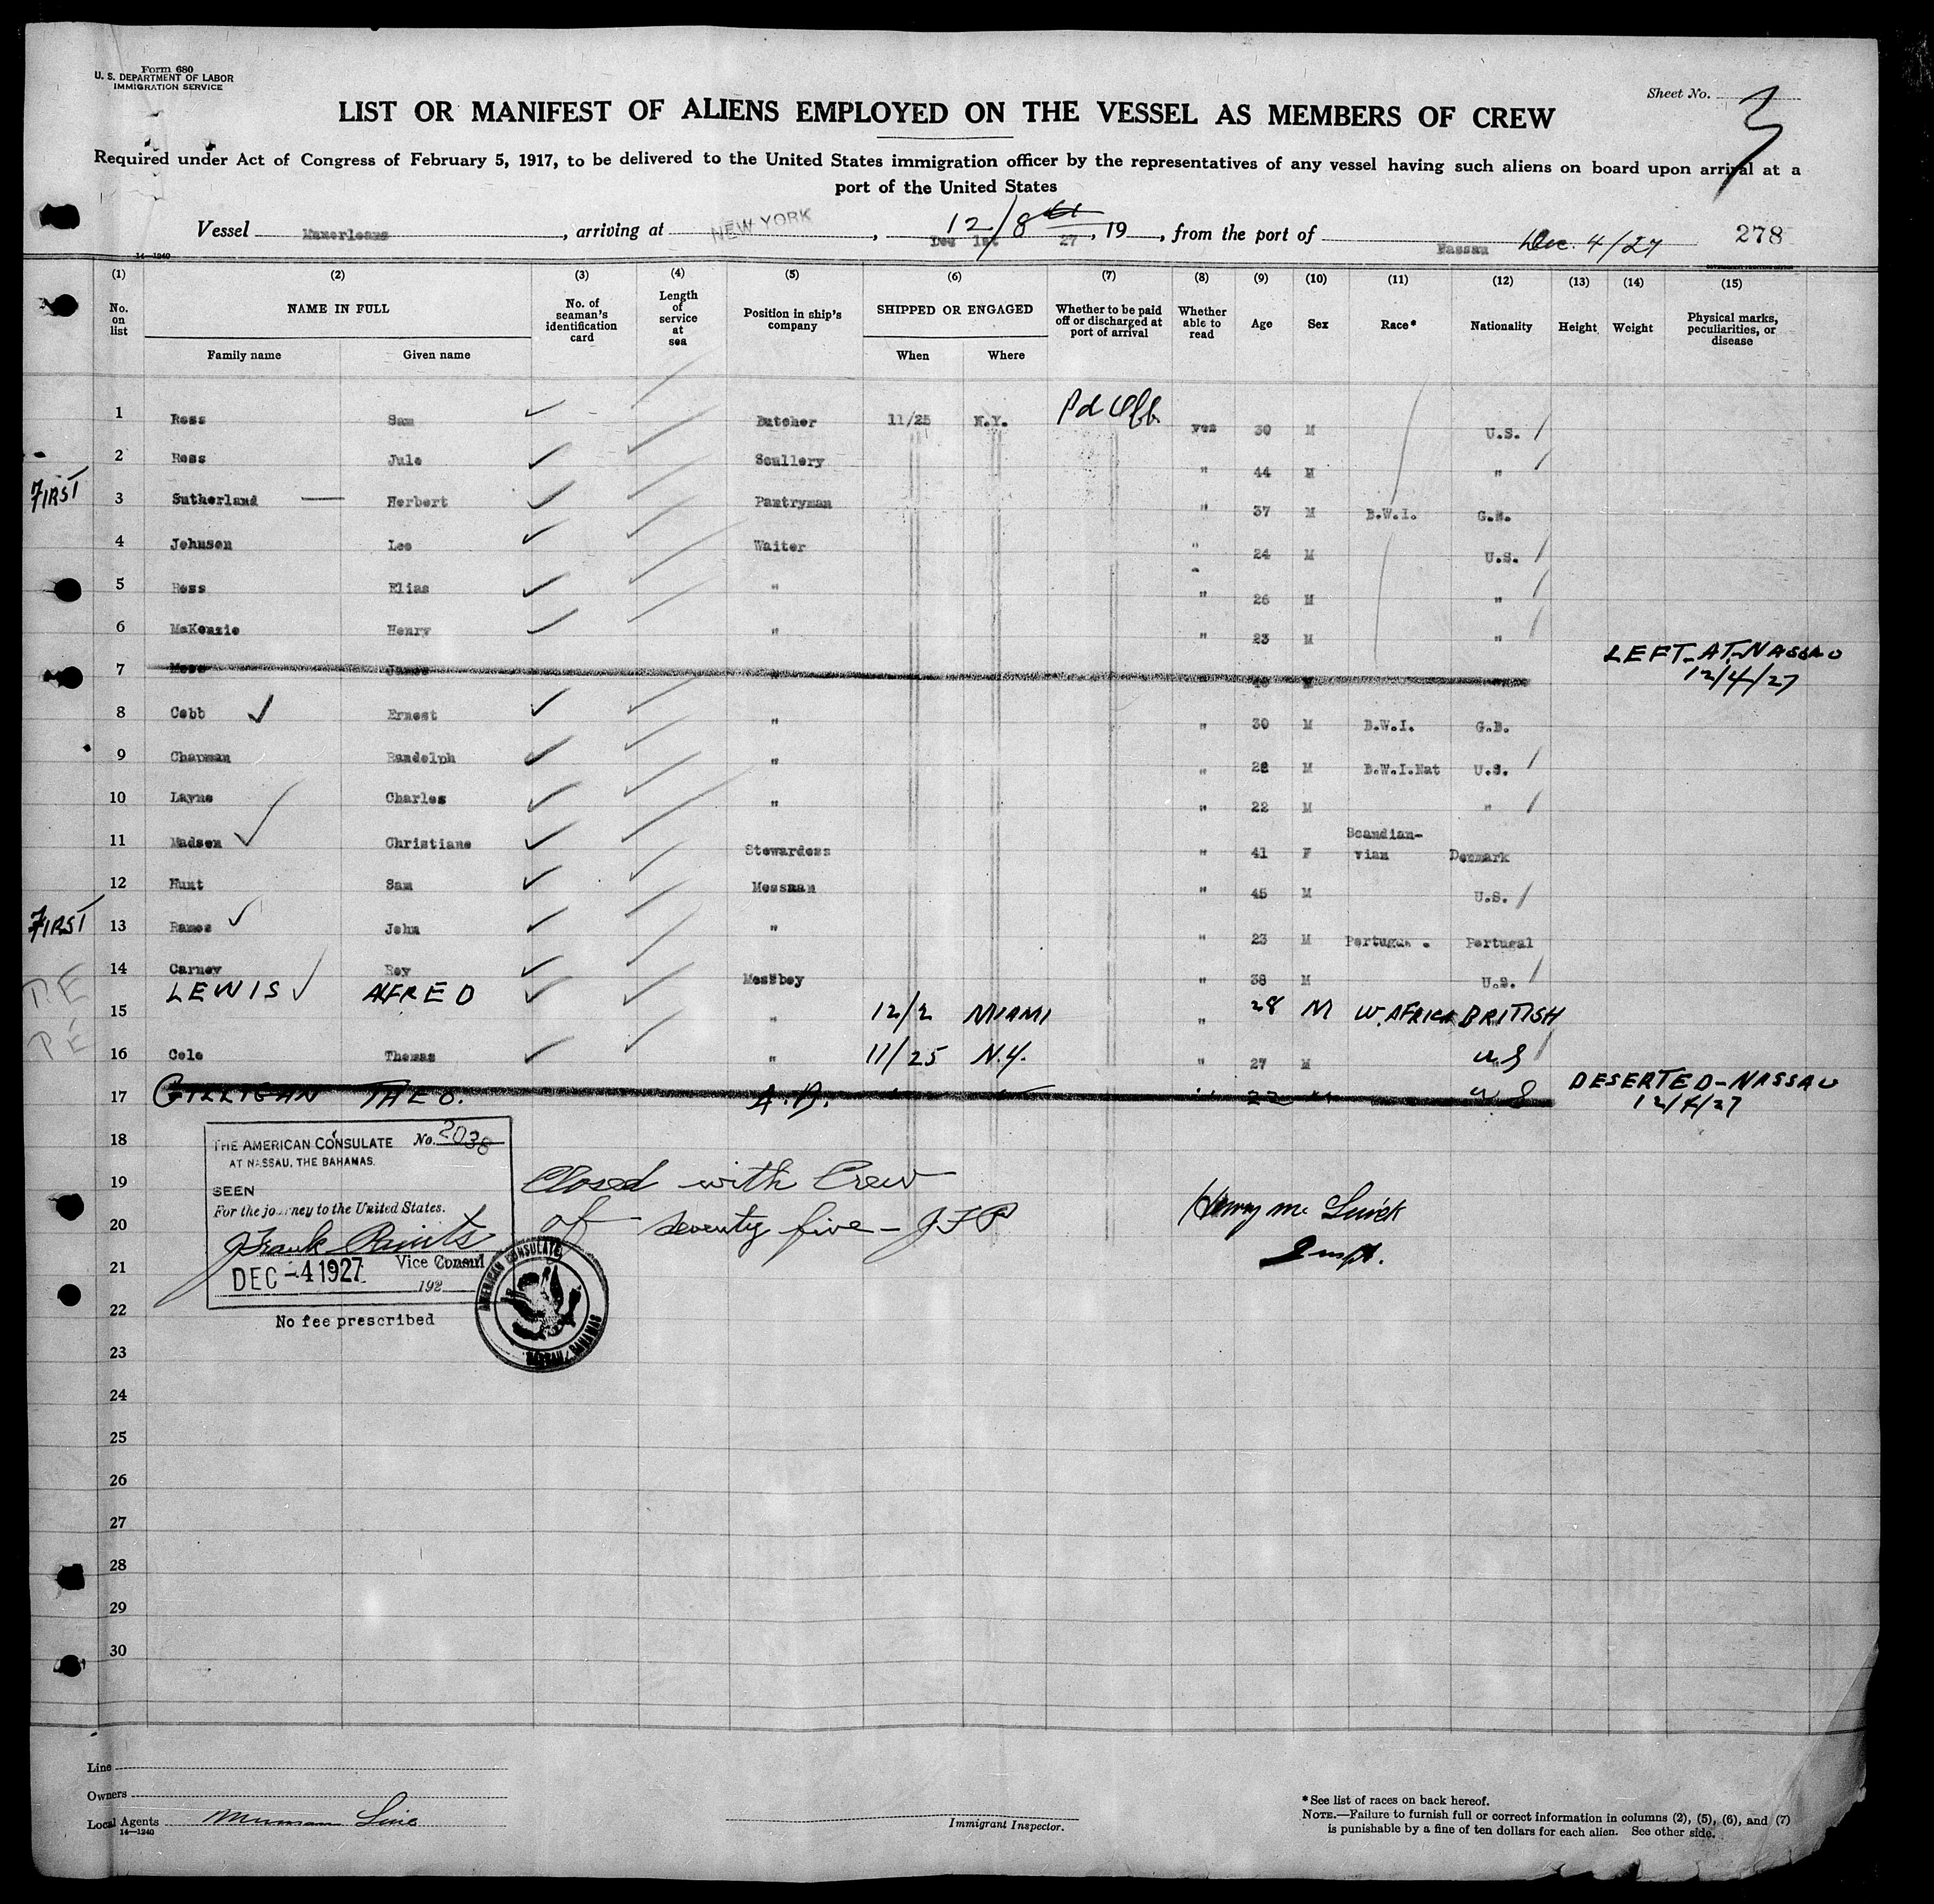 Form 680
U. S. DEPARTMENT OF LABOR
IMMIGRATION SERVICE
Sheet No. 3
LIST OR MANIFEST OF ALIENS EMPLOYED ON THE VESSEL AS MEMBERS OF CREW
Required under Act of Congress of February 5, 1917, to be delivered to the United States immigration officer by the representatives of any vessel having such aliens on board upon arrival at a
port of the United States
Vessel Munorleans, arriving at NEW YORK, Dec 1st 12/8 27, 19, from the port of Nassau Dec. 4/27 278
14—1240
(1) (2) (3) (4) (5) (6) (7) (8) (9) (10) (11) (12) (13) (14) (15)
No. on list NAME IN FULL No. of seaman's identification card Length of service at sea Position in ship's company SHIPPED OR ENGAGED Whether to be paid off or discharged at port of arrival Whether able to read Age Sex Race* Nationality Height Weight Physical marks, peculiarities, or disease
Family name Given name When Where
1 Ross Sam Butcher 11/25 N.Y. Pd Off. yes 30 M U.S.
2 Ross Jule Scullery " 44 M "
FIRST 3 Sutherland Herbert Pantryman " 37 M B.W.I. G.B.
4 Johnson Lee Waiter " 24 M U.S.
5 Ross Elias " " 26 M "
6 McKenzie Henry " " 23 M "
7 Moss James " " 40 M LEFT AT NASSAU 12/4/27
8 Cobb Ernest " " 30 M B.W.I. G.B.
9 Chapman Randolph " " 28 M B.W.I.Nat U.S.
10 Layne Charles " " 22 M "
11 Madsen Christiane Stewardess " 41 F Scandian-vian Denmark
12 Hunt Sam Messman " 45 M U.S.
FIRST 13 Ramos John " " 23 M Portugu. Portugal
14 Carney Roy Messboy " 38 M U.S.
P.E 15 LEWIS ALFRED " 12/2 MIAMI " 28 M W. AFRICA BRITISH
P.E 16 Cole Thomas " 11/25 N.Y. " 27 M U S
17 GILLIGAN THEO. A.B. " " " 22 " U S DESERTED-NASSAU 12/4/27
18
19
20
21
22
23
24
25
26
27
28
29
30
THE AMERICAN CONSULATE No. 2038
AT NASSAU, THE BAHAMAS.
SEEN
For the journey to the United States.
J Frank
Vice Consul
DEC -4 1927 192
No fee prescribed
AMERICAN CONSULATE
NASSAU, BAHAMAS
Closed with Crew
of seventy five - JFP
Henry Mc
Insp.
Line
Owners
Local Agents Munson Line
14—1240
Immigrant Inspector.
* See list of races on back hereof.
NOTE.—Failure to furnish full or correct information in columns (2), (5), (6), and (7)
is punishable by a fine of ten dollars for each alien. See other side.